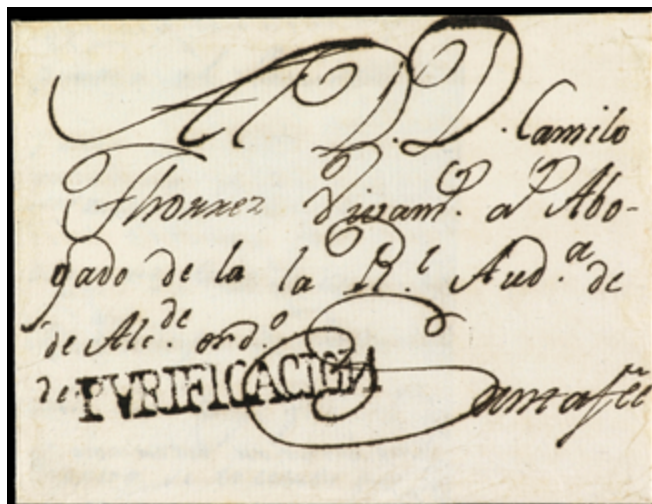 Al D. D. Camilo
Thorrez Juram.to a Abo-
gado de la la Rl Aud.a de
de Alc.de ord.o
de PVRIFICACION Santafee